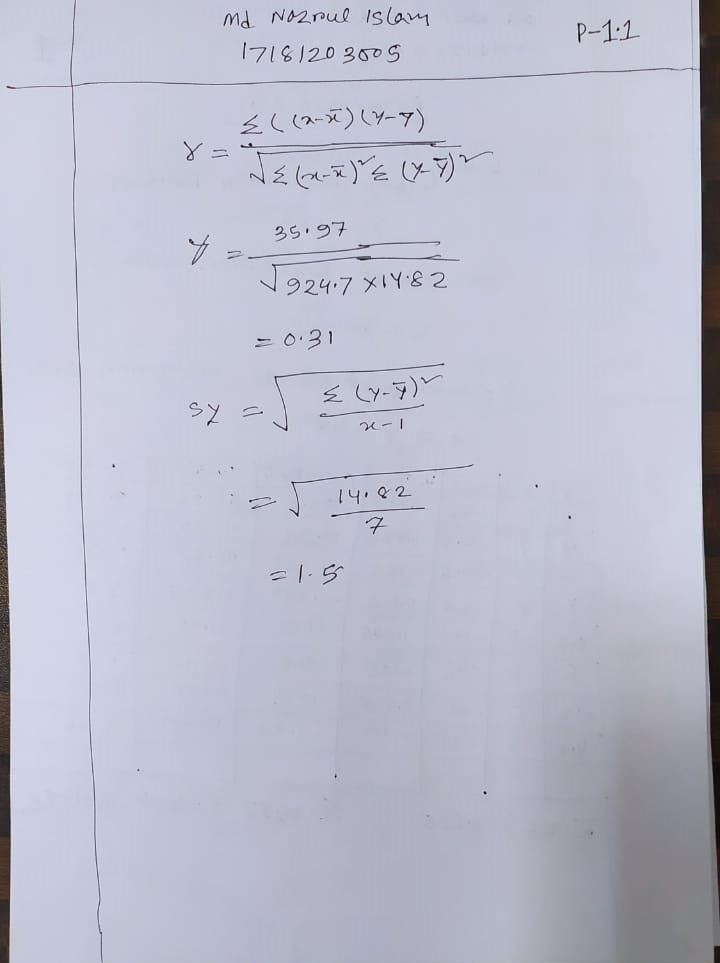 Md Nazrul Islam
17181203005
P-1.1
r = Σ ((x-x̄) (y-ȳ) / √Σ (x-x̄)² Σ (y-ȳ)²
r = 35.97 / √924.7 × 14.82
= 0.31
sy = √ Σ (y-ȳ)² / n-1
= √ 14.82 / 7
= 1.5